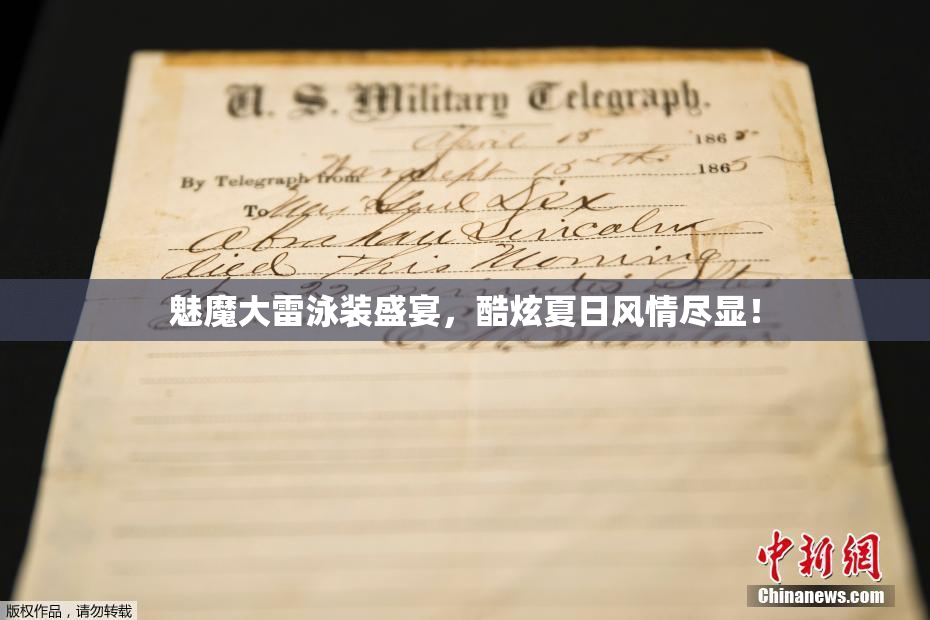 U. S. Military Telegraph.
April 15 1865
By Telegraph from War Dept 15th 1865
To Maj Genl Dix
Abraham Lincoln
died This Morning
at 22 minutes after
魅魔大雷泳装盛宴，酷炫夏日风情尽显！
E. M. Stanton
中新网
Chinanews.com
版权作品，请勿转载